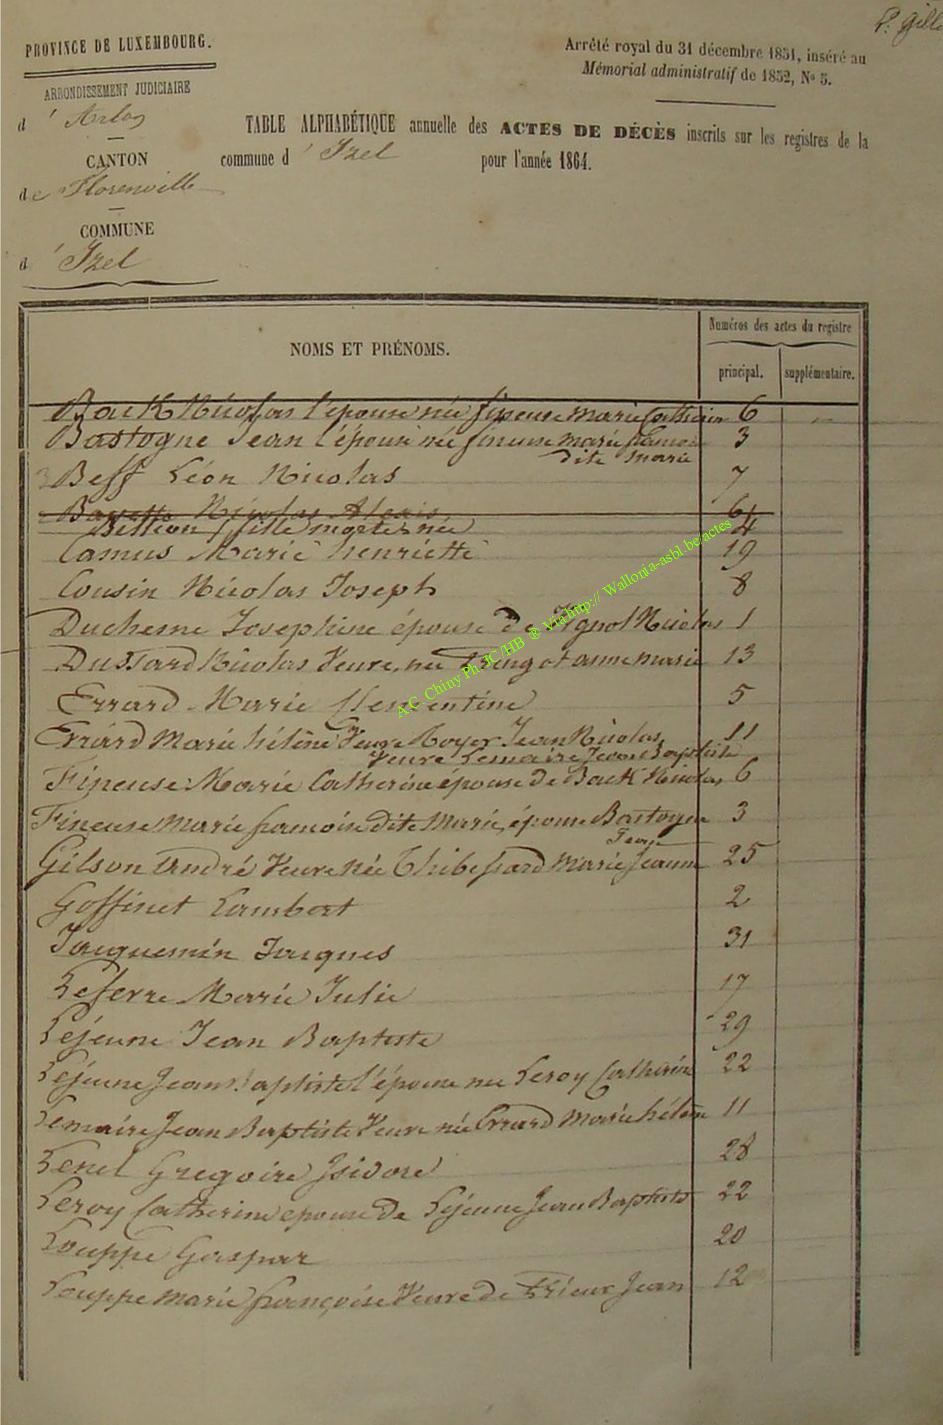 P. Gille
PROVINCE DE LUXEMBOURG.
Arrêté royal du 31 décembre 1851, inséré au
Mémorial administratif de 1852, No 5.
ARRONDISSEMENT JUDICIAIRE
d'Arlon
CANTON
de Florenville
COMMUNE
d'Izel
TABLE ALPHABÉTIQUE annuelle des ACTES DE DÉCÈS inscrits sur les registres de la
commune d'Izel pour l'année 1864.
NOMS ET PRÉNOMS.
Numéros des actes du registre
principal. supplémentaire.
Back Nicolas l'épouse née fineuse Marie Catherine 6
Bastogne Jean l'épouse née fineuse marie francoi 3
dite marie
Beff Léon Nicolas 7
Nicolas Alexis 6
fille morte née 4
Camus Marie henriette 19
Cousin Nicolas Joseph 8
Duchesne Josephine épouse de Nicolas 1
Dussard Nicolas Veuve née anne marie 13
Errard Marie Clementine 5
Errard Marie hélène Veuve Royer Jean Nicolas 11
Veuve Lemaire Jean Baptiste
Fineuse Marie Catherine épouse de Back Nicolas 6
Fineuse Marie francoise dite Marie, épouse Bastogne 3
Jean
Gilson André Veuve née Thibessard Marie Jeanne 25
Goffinet Lambert 2
Jacquemin Jacques 31
Lefevre Marie Julie 17
Léjeune Jean Baptiste 29
Léjeune Jean Baptiste l'épouse née Leroy Catherine 22
Lemaire Jean Baptiste Veuve née Errard Marie hélène 11
Lenel Gregoire Isidore 28
Leroy Catherine epouse de Léjeune Jean Baptiste 22
Louppe Gaspar 20
Louppe Marie françoise Veuve de Jean 12
A.C. Chiny Ph JC/HB ® Via http:// Wallonia-asbl.be/actes